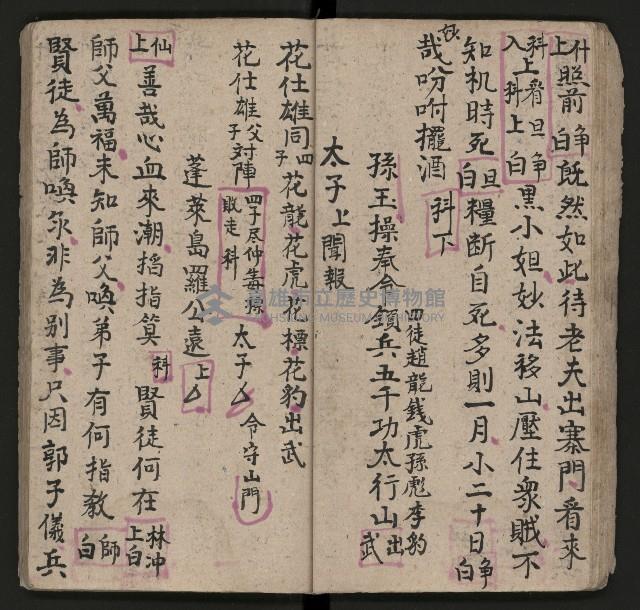 什上照前争白既然如此待老夫出寨門看來
科入上看旦争科上白黑小妲妙法移山壓住衆賊不
知机時死旦白糧断自死多則一月小二十日争白
哉吩咐擺酒科下
四徒趙龍銭虎孫彪李豹
孫玉操奉令領兵五千功太行山出武
太子上聞報
花仕雄同四子花龍花虎花標花豹出武
花仕雄父子対陣四子尽仲毒孫敗走科太子令守山門
蓬萊島羅公遠上
仙上善哉心血來潮搯指算科賢徒何在林冲上白
師父萬福未知師父喚弟子有何指教師白
賢徒為師喚永非為別事只因郭子儀兵
高雄市立歷史博物館
KAOHSIUNG MUSEUM OF HISTORY